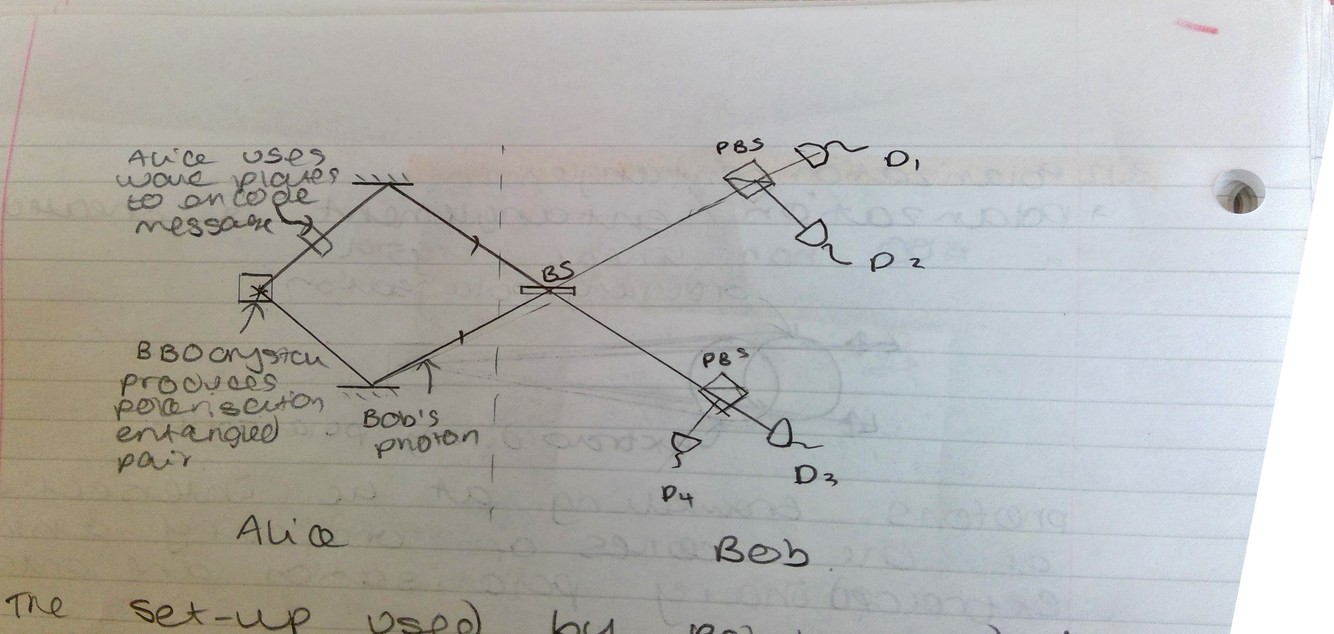 Alice uses
wave plates
to encode
message
BBO crystal
produces
polarisation
entangled
pair
Bob's
photon
BS
PBS
D1
D2
PBS
D3
D4
Alice
Bob
The set-up used by